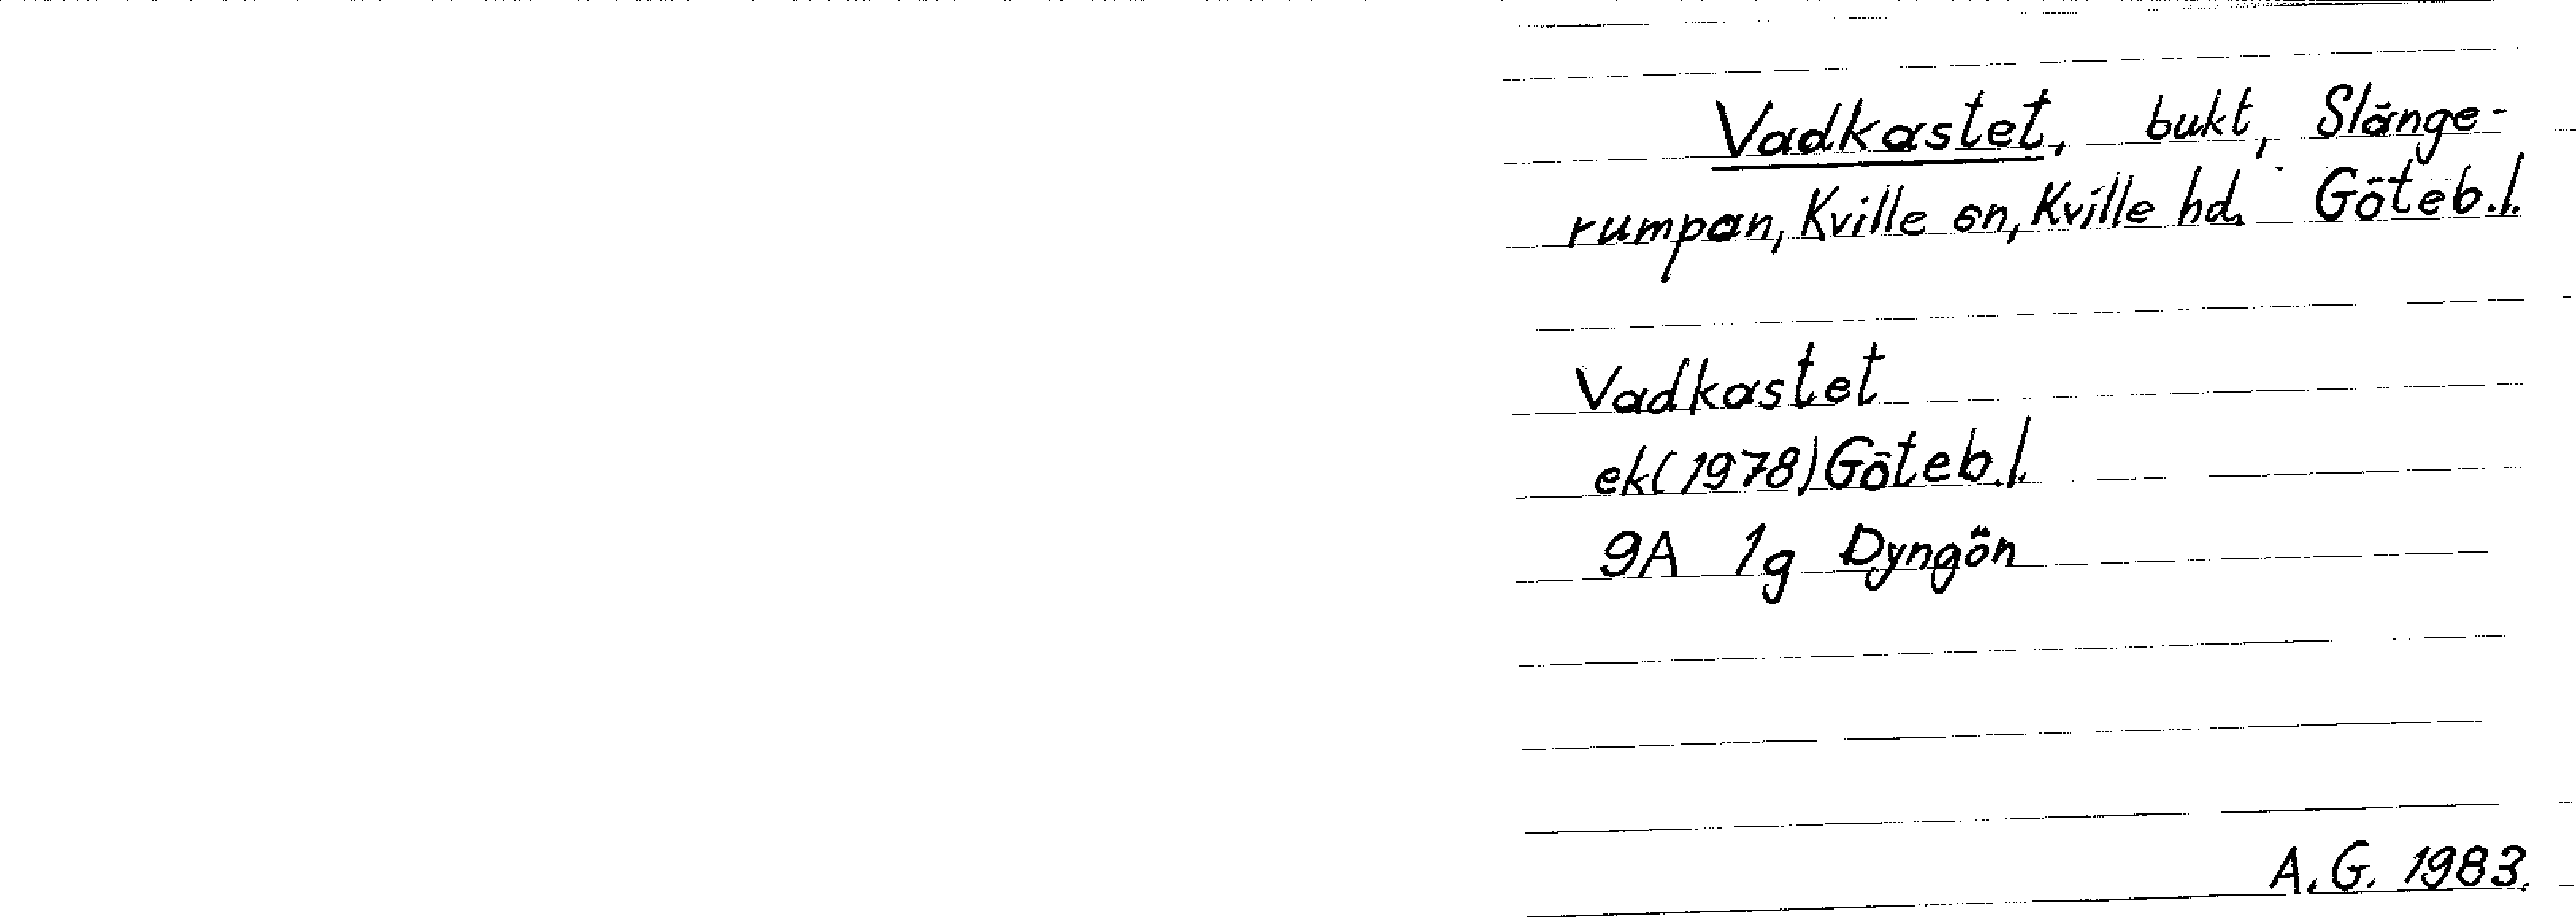 Vadkastet, bukt, Slänge-
rumpan, Kville sn, Kville hd. Göteb.l.
Vadkastet
ek(1978) Göteb.l.
9A 1g Dyngön
A.G. 1983.